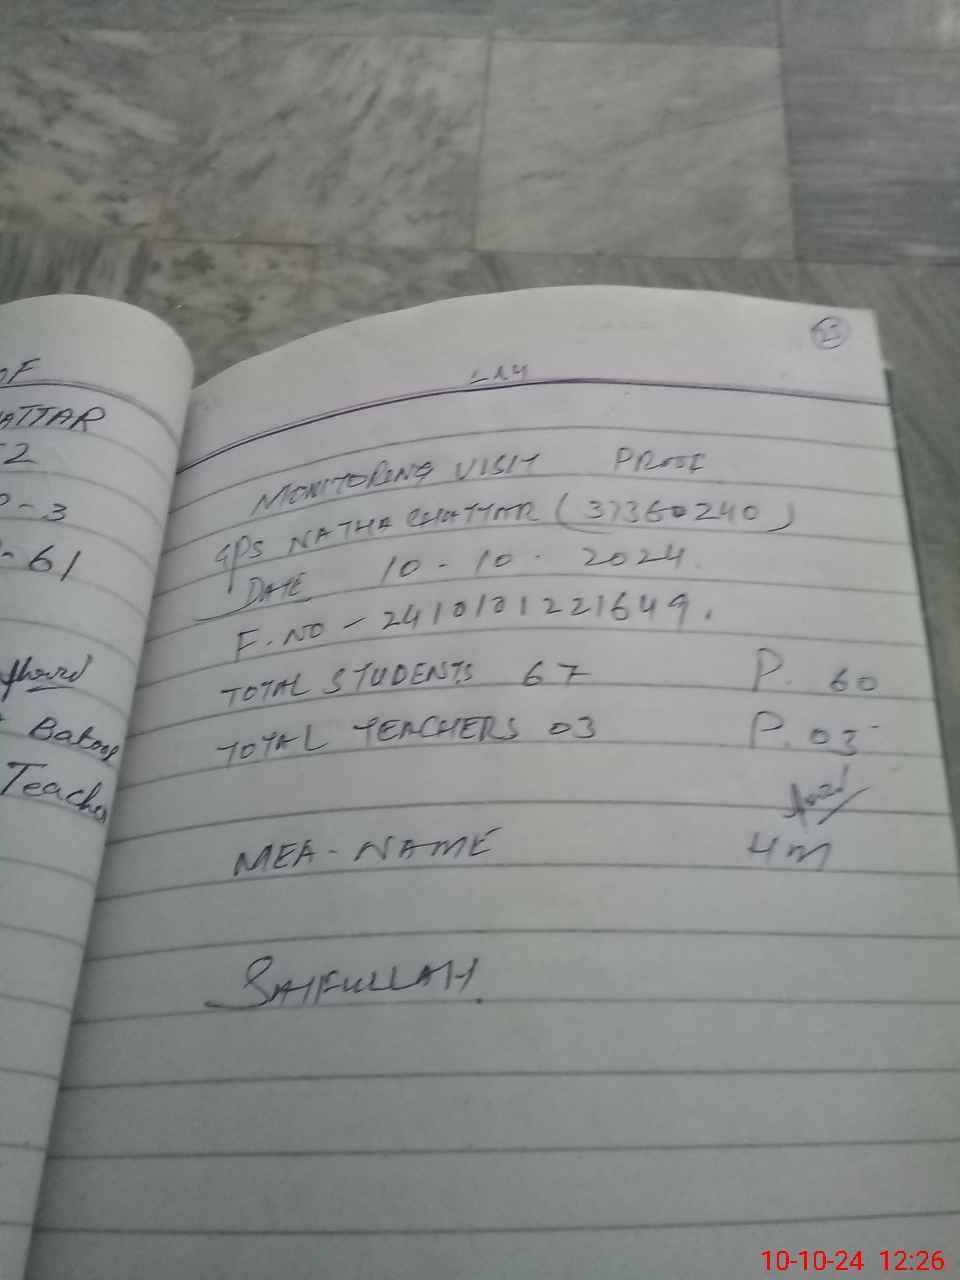 ATTAR
-2
P-3
-61
Batool
Teacher
23
MONITORING VISIT PROOF
GPS NATHA CHATTAR (37360240)
DATE 10-10-2024.
F.NO - 2410101221649.
TOTAL STUDENTS 67 P. 60
TOTAL TEACHERS 03 P. 03
MEA-NAME HM
SAIFULLAH.
10-10-24 12:26